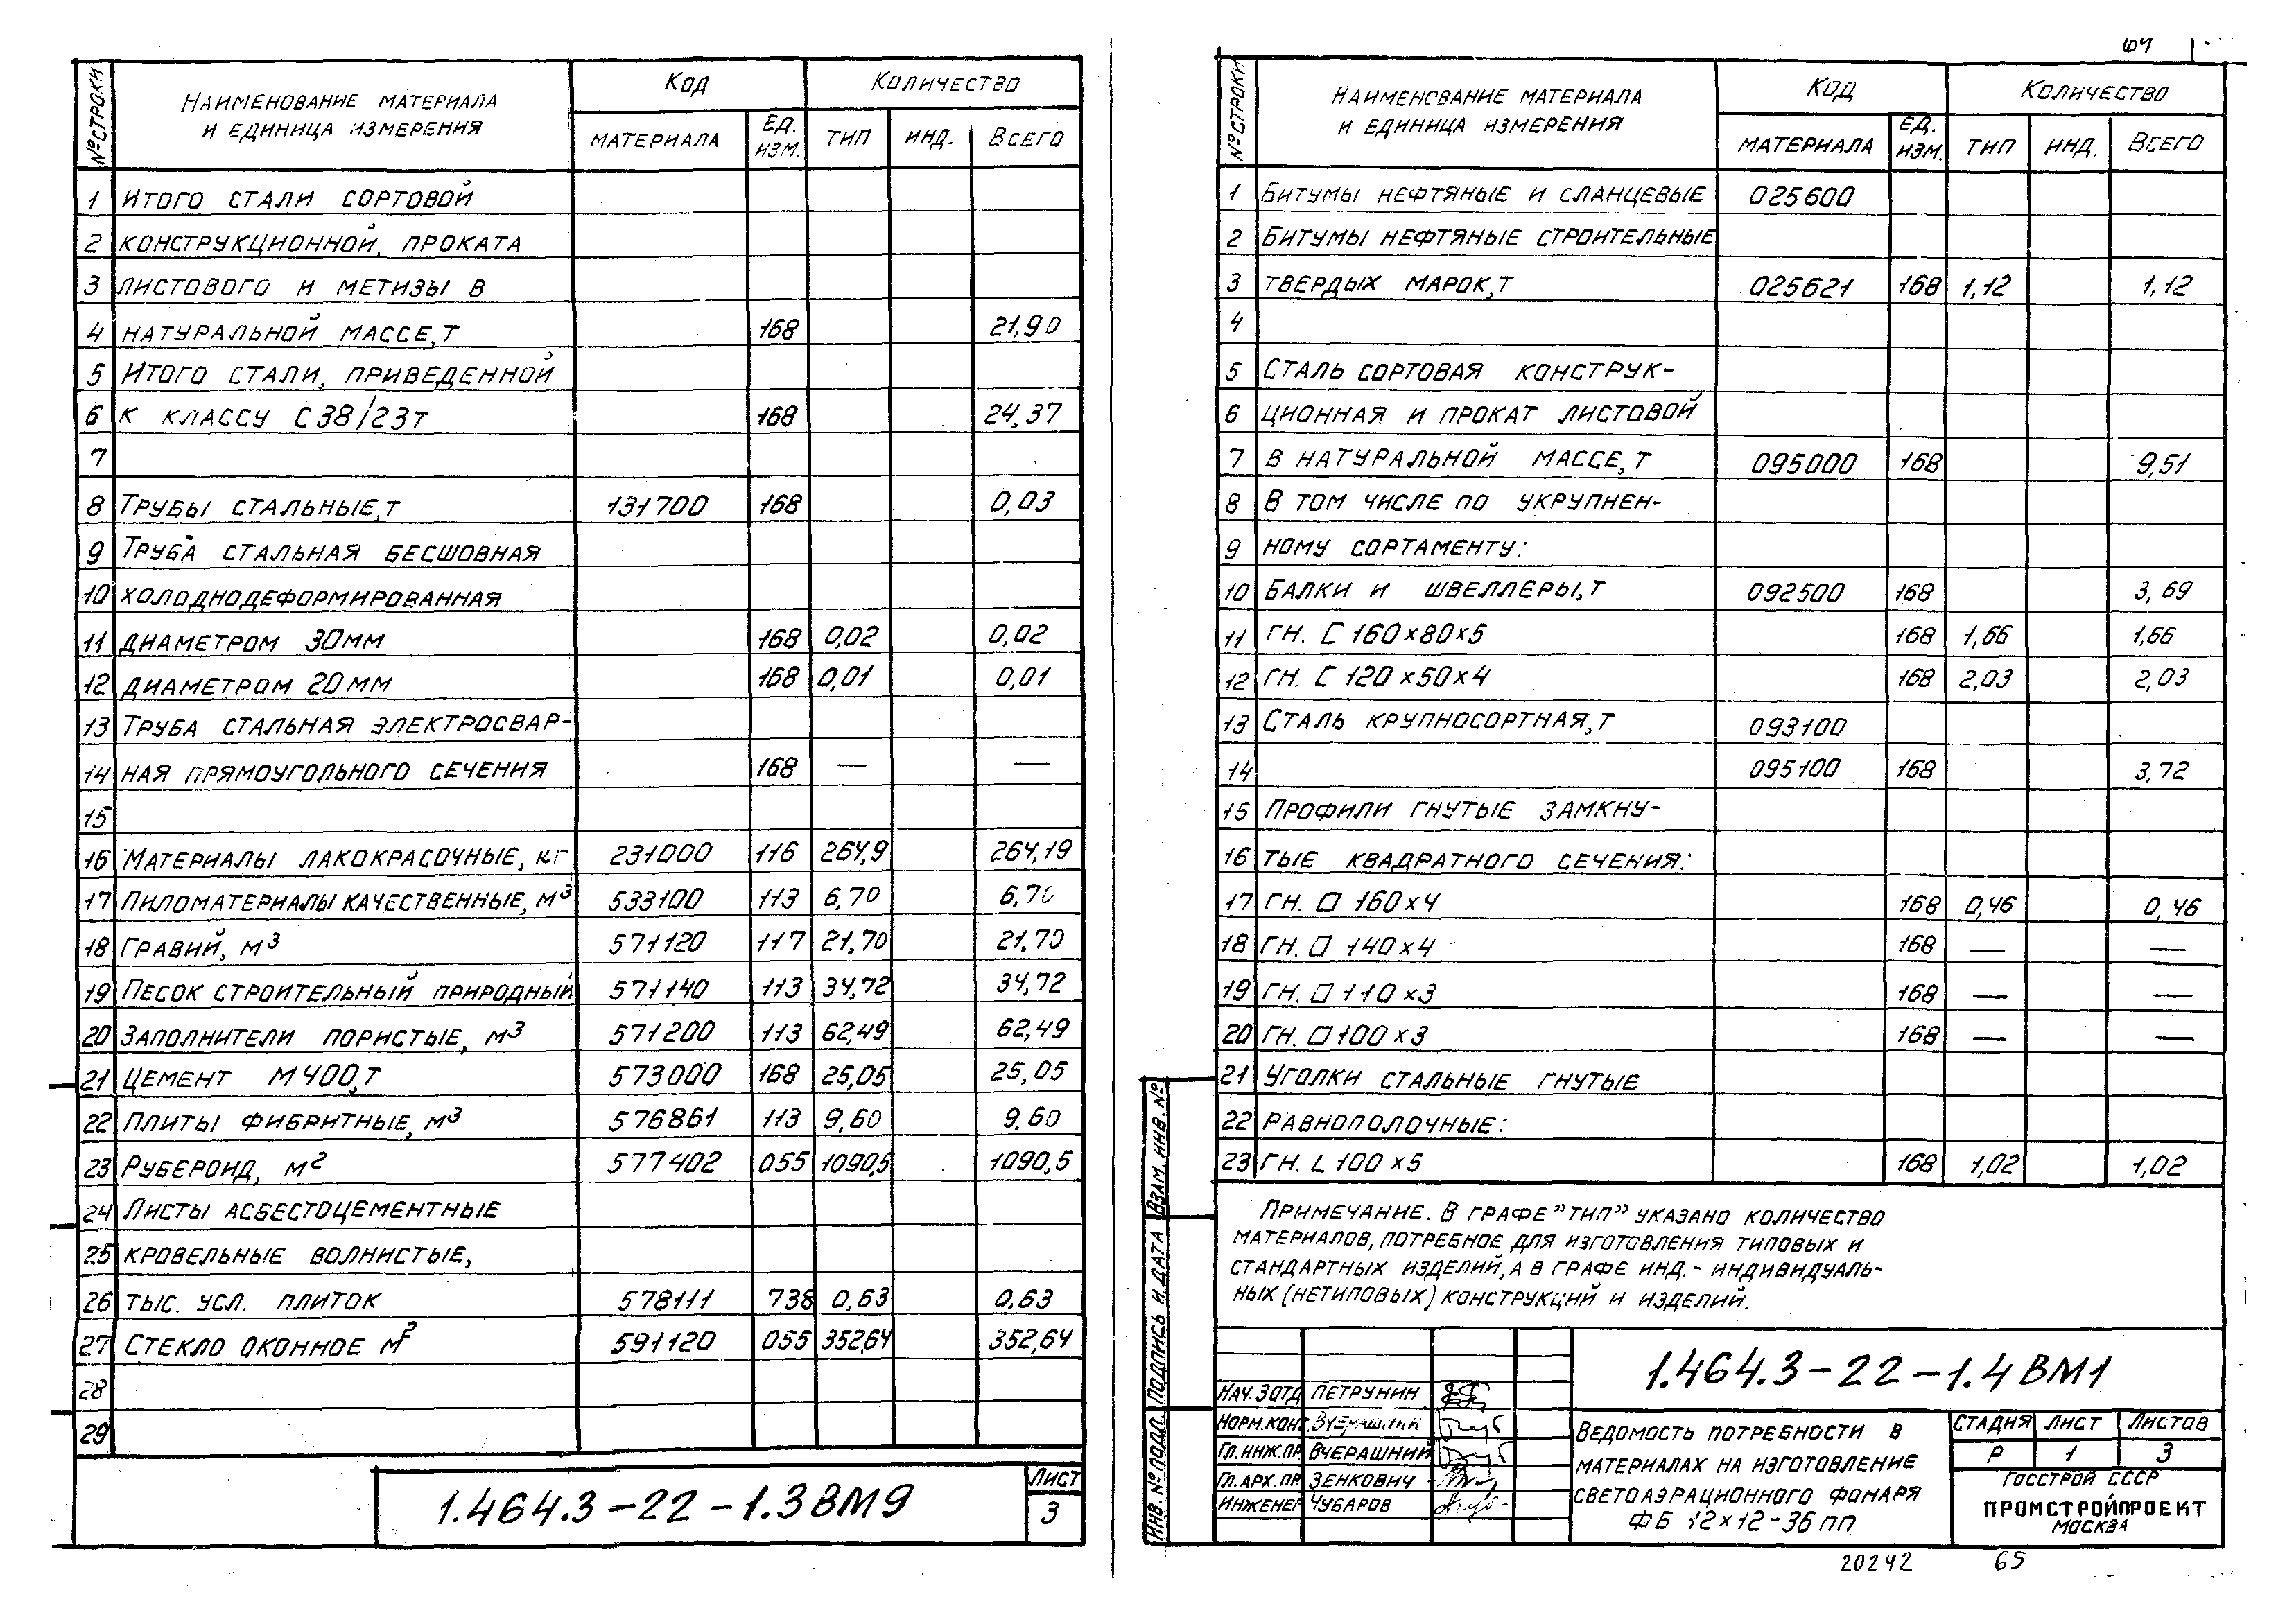 № СТРОКИ НАИМЕНОВАНИЕ МАТЕРИАЛА И ЕДИНИЦА ИЗМЕРЕНИЯ КОД КОЛИЧЕСТВО
МАТЕРИАЛА ЕД. ИЗМ. ТИП ИНД. ВСЕГО
1 ИТОГО СТАЛИ СОРТОВОЙ
2 КОНСТРУКЦИОННОЙ, ПРОКАТА
3 ЛИСТОВОГО И МЕТИЗЫ В
4 НАТУРАЛЬНОЙ МАССЕ, Т 168 21,90
5 ИТОГО СТАЛИ, ПРИВЕДЕННОЙ
6 К КЛАССУ С38/23Т 168 24,37
7
8 ТРУБЫ СТАЛЬНЫЕ, Т 131700 168 0,03
9 ТРУБА СТАЛЬНАЯ БЕСШОВНАЯ
10 ХОЛОДНОДЕФОРМИРОВАННАЯ
11 ДИАМЕТРОМ 30ММ 168 0,02 0,02
12 ДИАМЕТРОМ 20ММ 168 0,01 0,01
13 ТРУБА СТАЛЬНАЯ ЭЛЕКТРОСВАР-
14 НАЯ ПРЯМОУГОЛЬНОГО СЕЧЕНИЯ 168 — —
15
16 МАТЕРИАЛЫ ЛАКОКРАСОЧНЫЕ, КГ 231000 116 264,9 264,19
17 ПИЛОМАТЕРИАЛЫ КАЧЕСТВЕННЫЕ, М³ 533100 113 6,70 6,70
18 ГРАВИЙ, М³ 571120 117 21,70 21,70
19 ПЕСОК СТРОИТЕЛЬНЫЙ ПРИРОДНЫЙ 571140 113 34,72 34,72
20 ЗАПОЛНИТЕЛИ ПОРИСТЫЕ, М³ 571200 113 62,49 62,49
21 ЦЕМЕНТ М400, Т 573000 168 25,05 25,05
22 ПЛИТЫ ФИБРИТНЫЕ, М³ 576861 113 9,60 9,60
23 РУБЕРОИД, М² 577402 055 1090,5 1090,5
24 ЛИСТЫ АСБЕСТОЦЕМЕНТНЫЕ
25 КРОВЕЛЬНЫЕ ВОЛНИСТЫЕ,
26 ТЫС. УСЛ. ПЛИТОК 578111 738 0,63 0,63
27 СТЕКЛО ОКОННОЕ М² 591120 055 352,64 352,64
28
29
1.464.3-22-1.3ВМ9
ЛИСТ
3
64
№ СТРОКИ НАИМЕНОВАНИЕ МАТЕРИАЛА И ЕДИНИЦА ИЗМЕРЕНИЯ КОД КОЛИЧЕСТВО
МАТЕРИАЛА ЕД. ИЗМ. ТИП ИНД. ВСЕГО
1 БИТУМЫ НЕФТЯНЫЕ И СЛАНЦЕВЫЕ 025600
2 БИТУМЫ НЕФТЯНЫЕ СТРОИТЕЛЬНЫЕ
3 ТВЕРДЫХ МАРОК, Т 025621 168 1,12 1,12
4
5 СТАЛЬ СОРТОВАЯ КОНСТРУК-
6 ЦИОННАЯ И ПРОКАТ ЛИСТОВОЙ
7 В НАТУРАЛЬНОЙ МАССЕ, Т 095000 168 9,51
8 В ТОМ ЧИСЛЕ ПО УКРУПНЕН-
9 НОМУ СОРТАМЕНТУ:
10 БАЛКИ И ШВЕЛЛЕРЫ, Т 092500 168 3,69
11 ГН. [ 160×80×5 168 1,66 1,66
12 ГН. [ 120×50×4 168 2,03 2,03
13 СТАЛЬ КРУПНОСОРТНАЯ, Т 093100
14 095100 168 3,72
15 ПРОФИЛИ ГНУТЫЕ ЗАМКНУ-
16 ТЫЕ КВАДРАТНОГО СЕЧЕНИЯ:
17 ГН. □ 160×4 168 0,46 0,46
18 ГН. □ 140×4 168 — —
19 ГН. □ 110×3 168 — —
20 ГН. □ 100×3 168 — —
21 УГОЛКИ СТАЛЬНЫЕ ГНУТЫЕ
22 РАВНОПОЛОЧНЫЕ:
23 ГН. L 100×5 168 1,02 1,02
ПРИМЕЧАНИЕ. В ГРАФЕ "ТИП" УКАЗАНО КОЛИЧЕСТВО
МАТЕРИАЛОВ, ПОТРЕБНОЕ ДЛЯ ИЗГОТОВЛЕНИЯ ТИПОВЫХ И
СТАНДАРТНЫХ ИЗДЕЛИЙ, А В ГРАФЕ ИНД.- ИНДИВИДУАЛЬ-
НЫХ (НЕТИПОВЫХ) КОНСТРУКЦИЙ И ИЗДЕЛИЙ.
ИНВ. № ПОДЛ. ПОДПИСЬ И ДАТА ВЗАМ. ИНВ. №
НАЧ. ЗОТД ПЕТРУНИН
НОРМ.КОНТ. ВЧЕРАШНИЙ
ГЛ. ИНЖ. ПР. ВЧЕРАШНИЙ
ГЛ. АРХ. ПР. ЗЕНКОВИЧ
ИНЖЕНЕР ЧУБАРОВ
1.464.3-22-1.4ВМ1
ВЕДОМОСТЬ ПОТРЕБНОСТИ В
МАТЕРИАЛАХ НА ИЗГОТОВЛЕНИЕ
СВЕТОАЭРАЦИОННОГО ФОНАРЯ
ФБ 12×12-36ПП
СТАДИЯ ЛИСТ ЛИСТОВ
Р 1 3
ГОССТРОЙ СССР
ПРОМСТРОЙПРОЕКТ
МОСКВА
20242 65